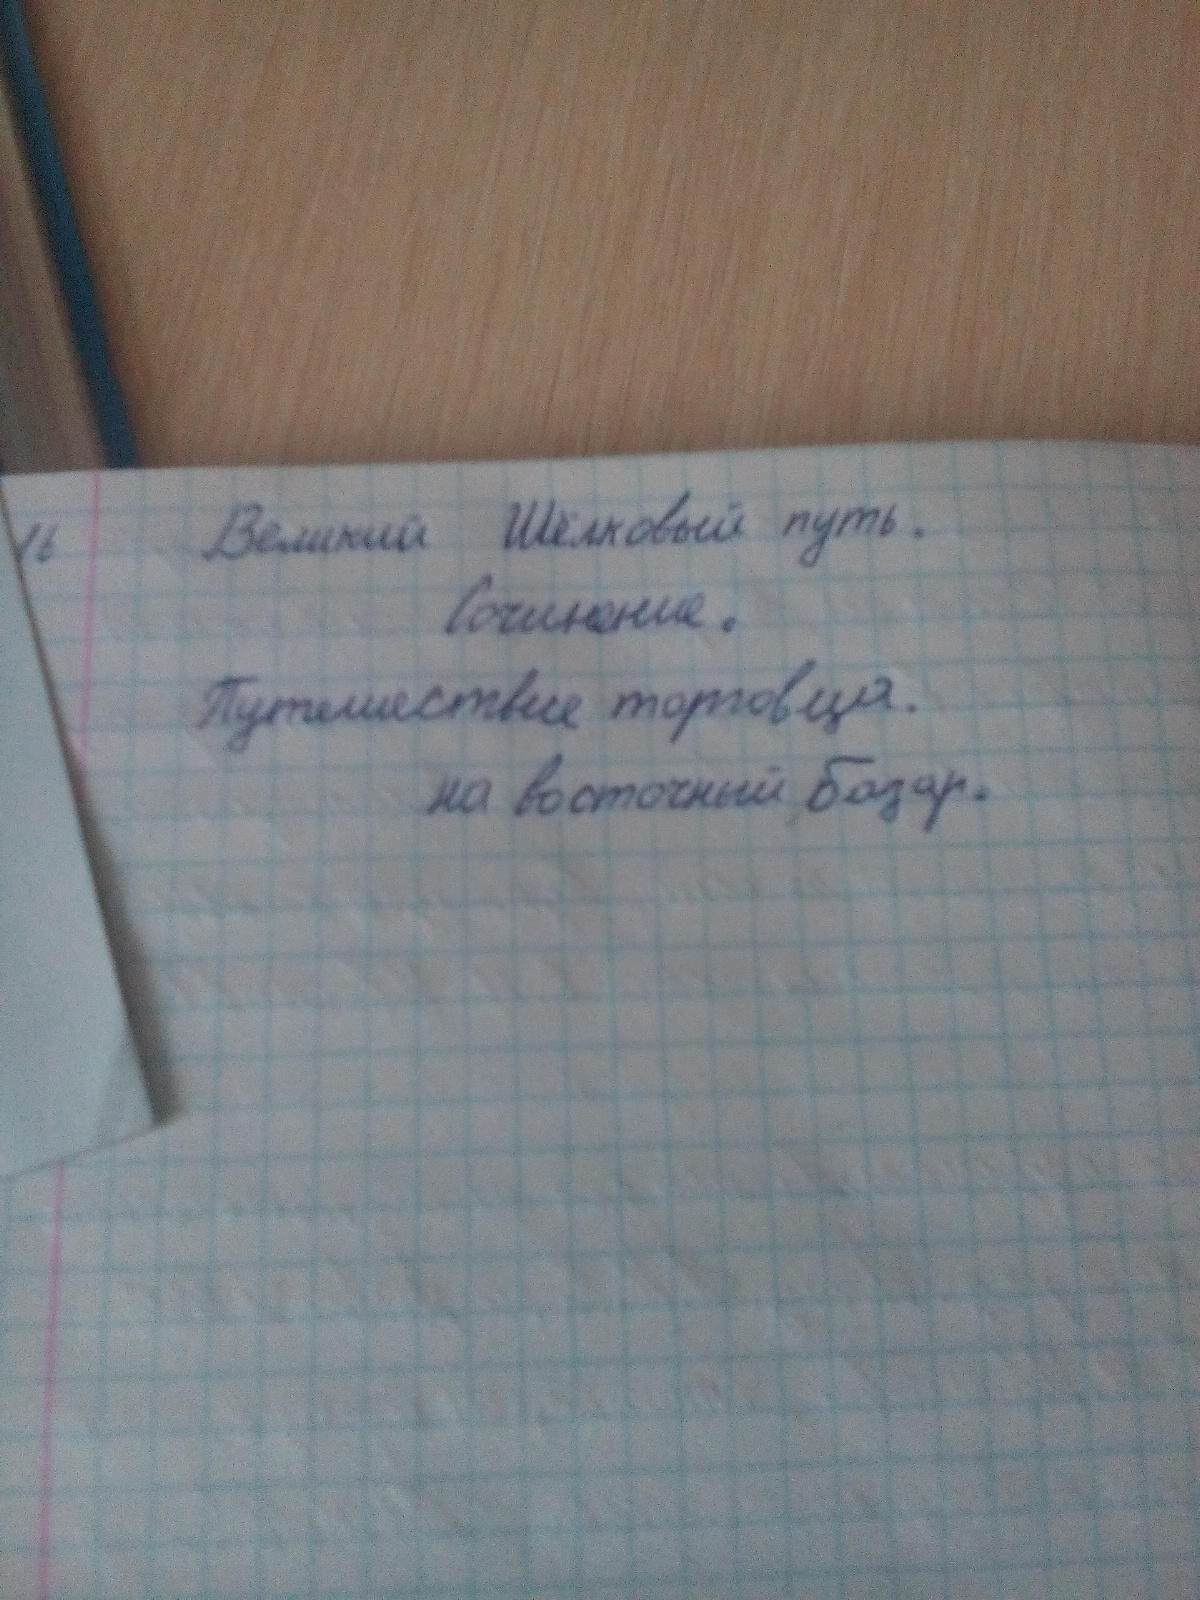 16 Великий Шёлковый путь.
Сочинение.
Путешествие торговца.
на восточный базар.